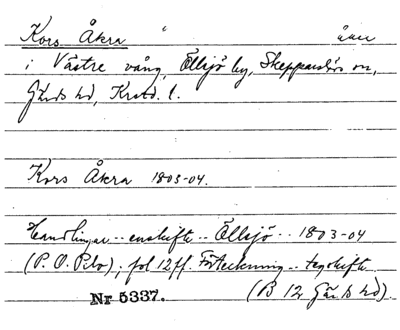 Kors Åkra " åker
i Västre vång, Ellsjö by, Skepparslövs sn,
Gärds hd, Krstd. l.
Kors Åkra 1803-04.
Handlingar .. enskifte .. Ellsjö .. 1803-04
(P. O. ); fol 12 ff. Förteckning .. tegskifte
Nr 5337. (B 12 Gärds hd).